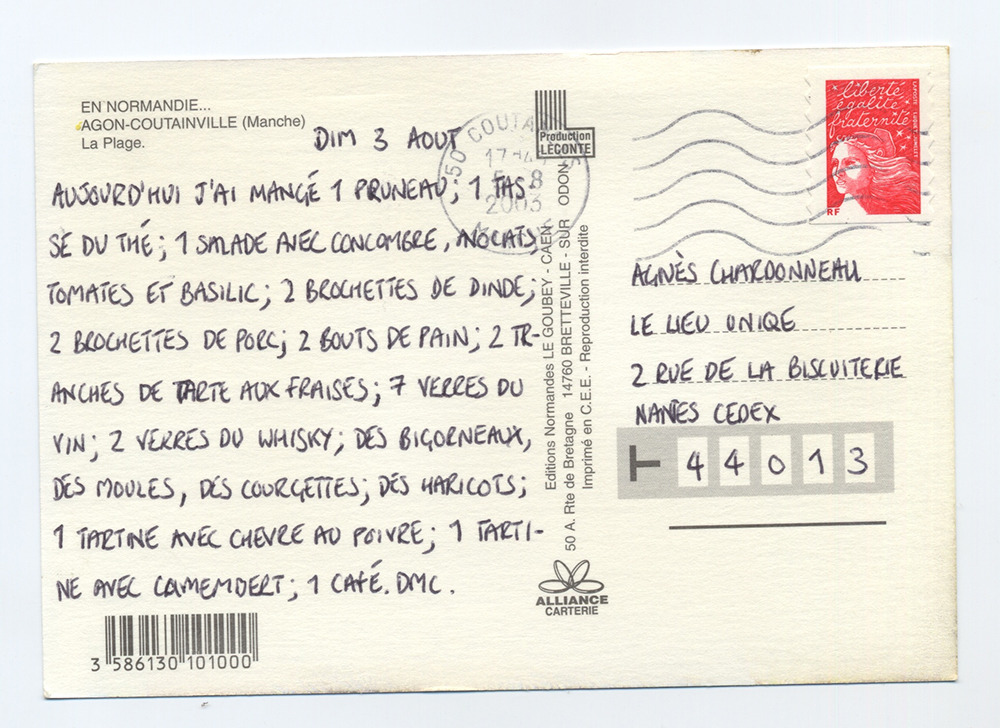 EN NORMANDIE...
AGON-COUTAINVILLE (Manche)
La Plage.
DIM 3 AOUT
AUJOURD'HUI J'AI MANGÉ 1 PRUNEAU; 1 TAS-
SE DU THÉ; 1 SALADE AVEC CONCOMBRE, AVOCATS,
TOMATES ET BASILIC; 2 BROCHETTES DE DINDE;
2 BROCHETTES DE PORC; 2 BOUTS DE PAIN; 2 TR-
ANCHES DE TARTE AUX FRAISES; 7 VERRES DU
VIN; 2 VERRES DU WHISKY; DES BIGORNEAUX,
DES MOULES, DES COURGETTES; DES HARICOTS;
1 TARTINE AVEC CHEVRE AU POIVRE; 1 TARTI-
NE AVEC CAMEMBERT; 1 CAFÉ. DMC.
3 586130 101000
Production
LECONTE
50 COUTA
5-8
2003
Editions Normandes LE GOUBEY - CAEN
50 A. Rte de Bretagne 14760 BRETTEVILLE - SUR ODON
Imprimé en C.E.E. - Reproduction interdite
ALLIANCE
CARTERIE
liberté
égalité
fraternité
RF
AGNÈS CHARDONNEAU
LE LIEU UNIQE
2 RUE DE LA BISCUITERIE
NANTES CEDEX
44013